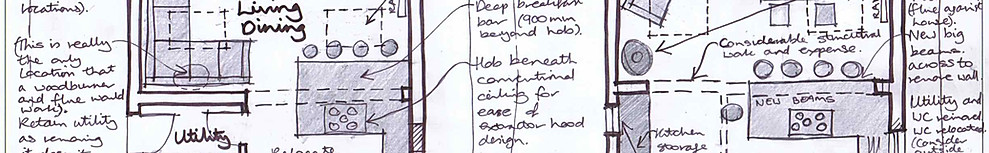 locations).
This is really
the only
location that
a woodburner
and flue would
work).
Retain utility
as removing
Living
Dining
Utility
Relocate
Deep breakfast
bar (900mm
beyond hob).
Hob beneath
conventional
ceiling for
ease of
extractor hood
design.
Considerable structural
work and expense.
NEW BEAMS
Kitchen
storage
(flue against
house).
New big
beams
across to
remove wall.
Utility and
WC removed
WC relocated.
(Consider
outside